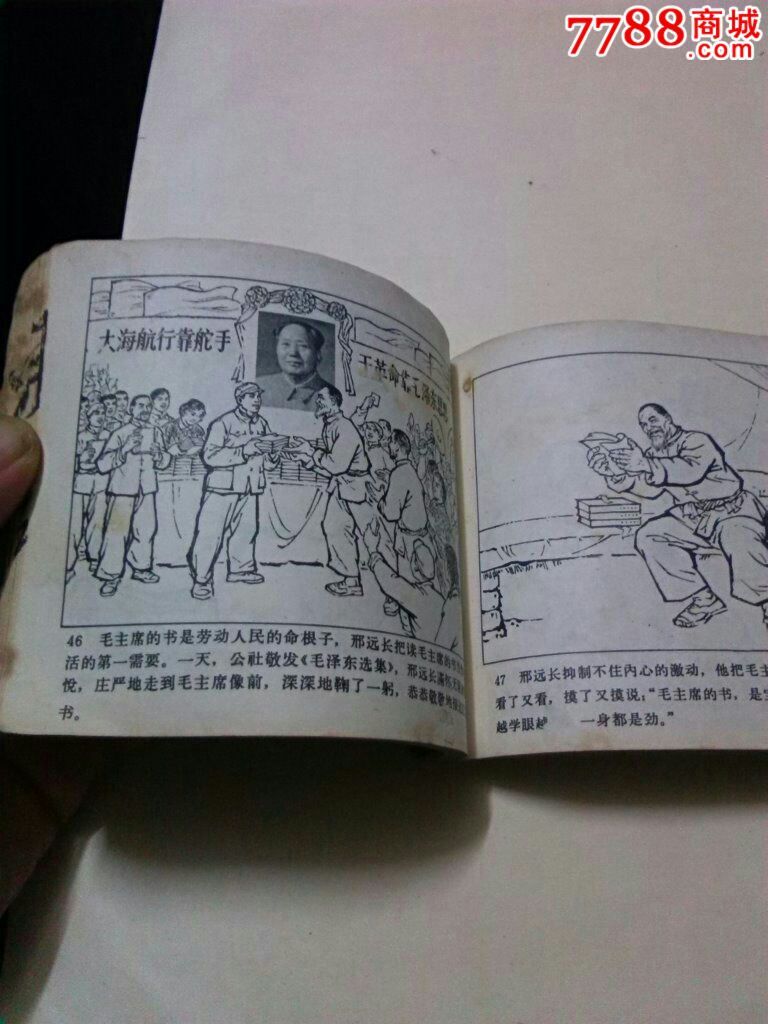 7788商城
.com
大海航行靠舵手
干革命靠毛泽东思想
46 毛主席的书是劳动人民的命根子，邢远长把读毛主席的书
活的第一需要。一天，公社敬发《毛泽东选集》，邢远长满怀
悦，庄严地走到毛主席像前，深深地鞠了一躬，恭恭敬敬地
书。
47 邢远长抑制不住内心的激动，他把毛主
看了又看，摸了又摸说：“毛主席的书，是
越学眼越 一身都是劲。”